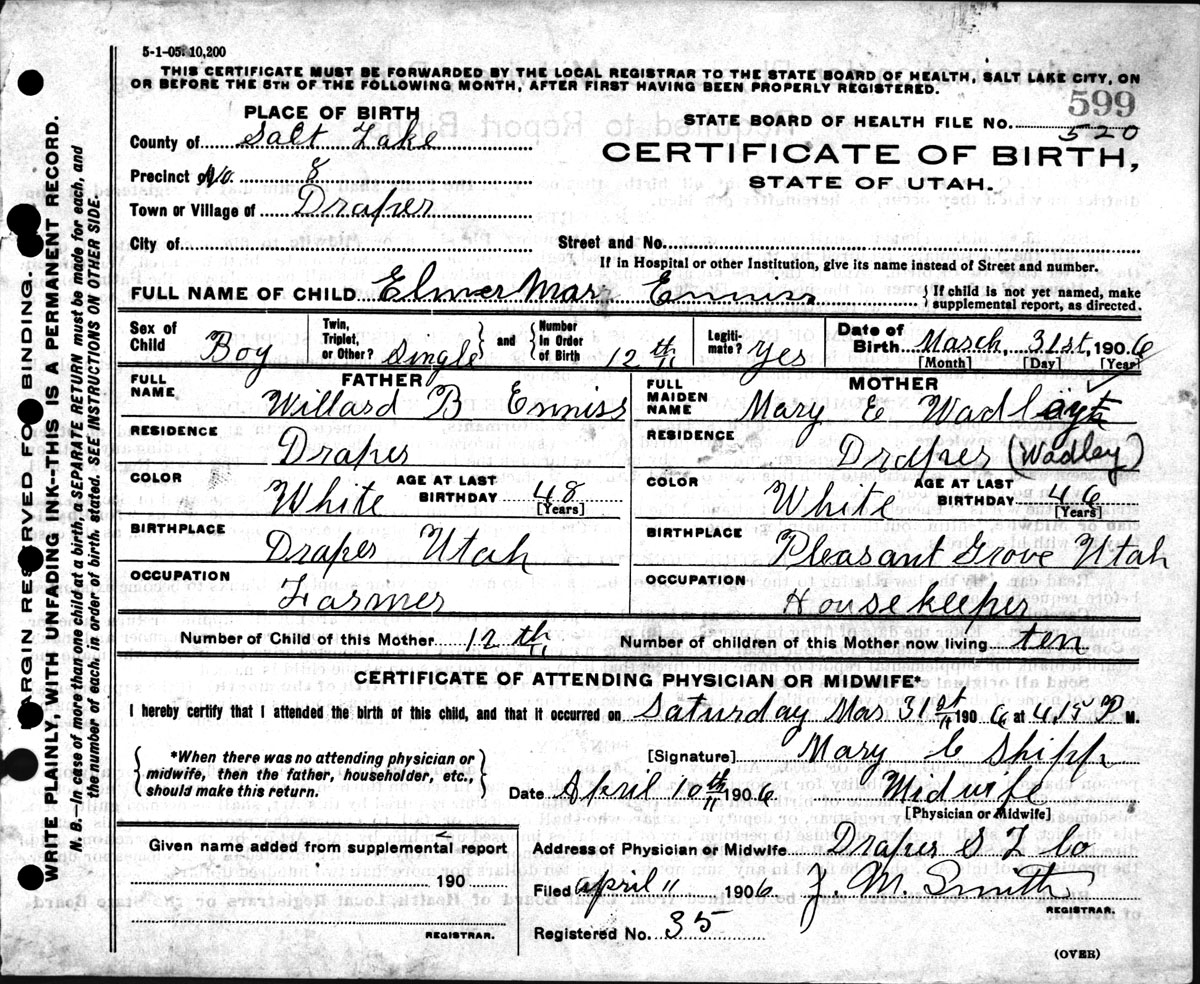 5-1-05. 10,200
THIS CERTIFICATE MUST BE FORWARDED BY THE LOCAL REGISTRAR TO THE STATE BOARD OF HEALTH, SALT LAKE CITY, ON
OR BEFORE THE 5TH OF THE FOLLOWING MONTH, AFTER FIRST HAVING BEEN PROPERLY REGISTERED.
599
PLACE OF BIRTH
STATE BOARD OF HEALTH FILE NO. 520
County of Salt Lake
CERTIFICATE OF BIRTH,
Precinct No. 8
STATE OF UTAH.
Town or Village of Draper
City of Street and No.
If in Hospital or other Institution, give its name instead of Street and number.
FULL NAME OF CHILD Elmer Mar Enniss { If child is not yet named, make supplemental report, as directed.
Sex of Child Boy Twin, Triplet, or Other? Single and Number In Order of Birth 12th Legiti-mate? Yes Date of Birth March, 31st, 1906
[Month] [Day] [Year]
FATHER MOTHER
FULL NAME Willard B Enniss FULL MAIDEN NAME Mary E Wadley
RESIDENCE Draper RESIDENCE Draper (Wadley)
COLOR White AGE AT LAST BIRTHDAY 48 [Years] COLOR White AGE AT LAST BIRTHDAY 46 [Years]
BIRTHPLACE Draper Utah BIRTHPLACE Pleasant Grove Utah
OCCUPATION Farmer OCCUPATION Housekeeper
Number of Child of this Mother 12th Number of children of this Mother now living ten
CERTIFICATE OF ATTENDING PHYSICIAN OR MIDWIFE*
I hereby certify that I attended the birth of this child, and that it occurred on Saturday Mar 31st 1906 at 4.15 P M.
*When there was no attending physician or midwife, then the father, householder, etc., should make this return.
[Signature] Mary E Shipp
Date April 10th 1906 Midwife
[Physician or Midwife]
Given name added from supplemental report
Address of Physician or Midwife Draper S L Co
190
Filed April 11 1906 J. M. Smith
REGISTRAR.
REGISTRAR.
Registered No. 35
(OVER)
MARGIN RESERVED FOR BINDING
WRITE PLAINLY, WITH UNFADING INK--THIS IS A PERMANENT RECORD.
N. B.--In case of more than one child at a birth, a SEPARATE RETURN must be made for each, and
the number of each, in order of birth, stated. SEE INSTRUCTIONS ON OTHER SIDE.